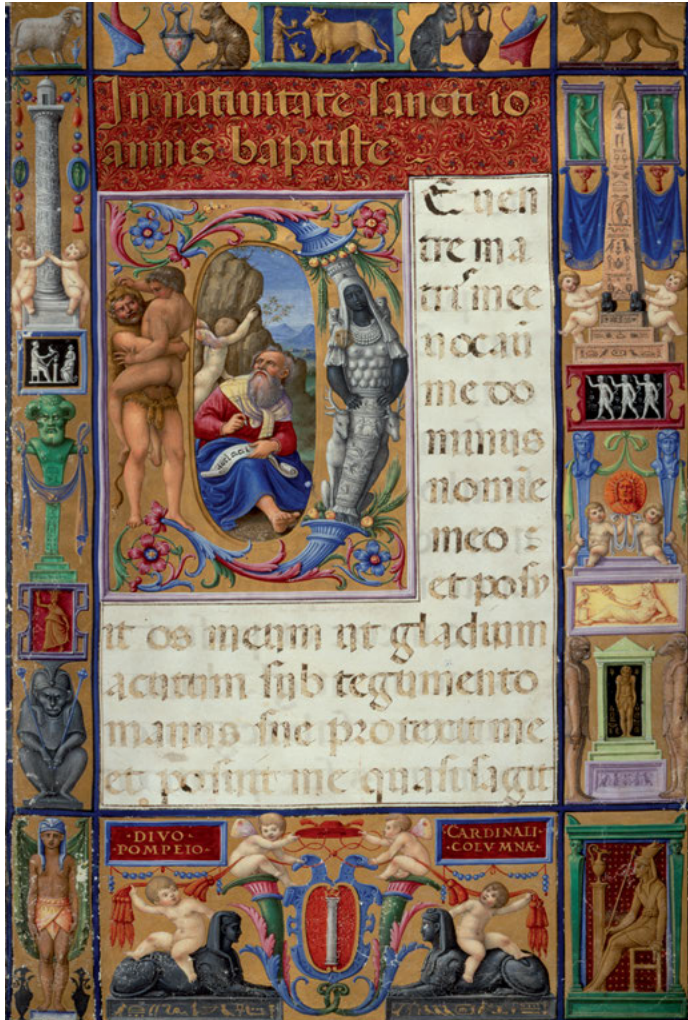 In natiuitate sancti io
annis baptiste
DE uen
tre ma
tris mee
uocaũ
me do
minus
nomĩe
meo :
et posu
it os meum ut gladium
acutum sub tegumento
manus sue protexit me
et posuit me quasi sagit
·DIVO·
POMPEIO·
CARDINALI·
·COLVMNÆ·